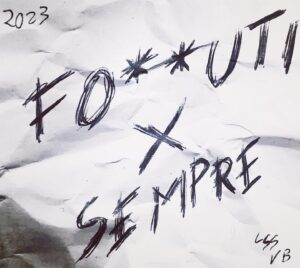 2023
FO***UTI
X
SEMPRE
VB